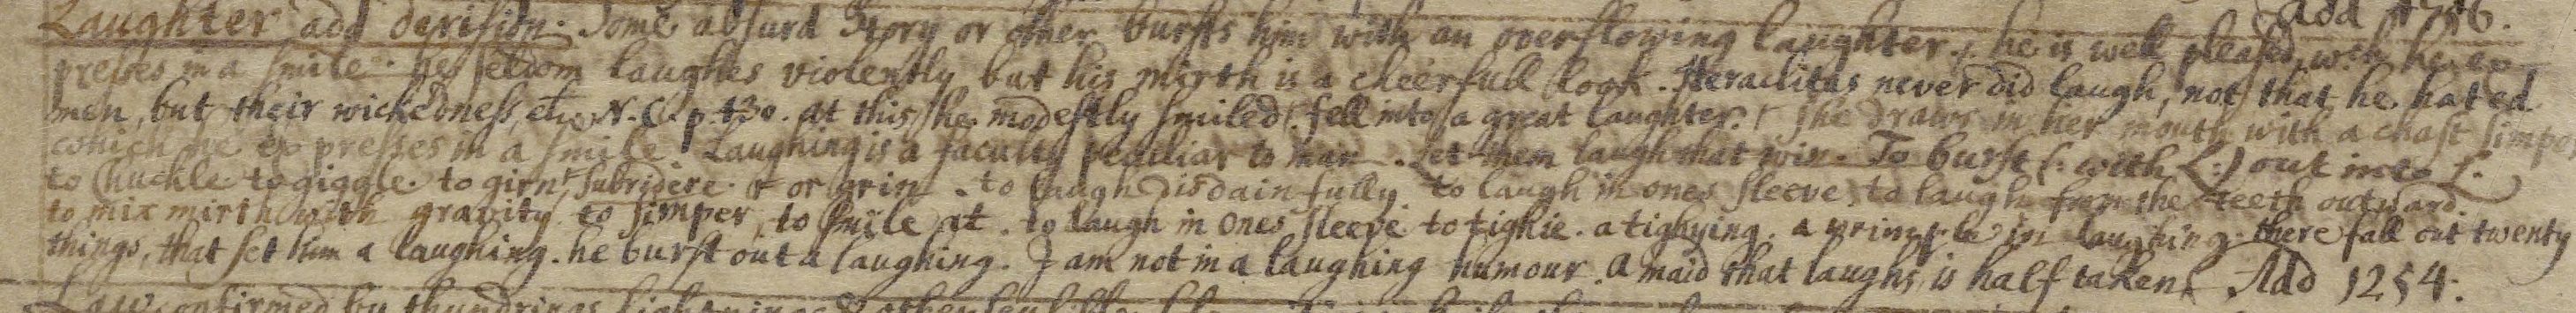 add 1256.
Laughter add derision. Some absurd Story or other bursts him with an overflowing laughter. he is well pleased, wch he ex
presses in a smile. he seldom laughes violently but his mirth is a cheerfull look. Heraclitus never did laugh, not that he hated
men, but their wickedness, N. C. p. 130. at this she modestly smiled. fell into a great laughter. she draws in her mouth with a chast simper
which he expresses in a smile. Laughing is a faculty peculiar to man. Let them laugh that win. To burst (: with L:) out into L.
to Chuckle. to giggle. to girn, subridere. or grin. to laugh disdainfully. to laugh in ones sleeve, to laugh from the teeth outward.
to mix mirth with gravity. to simper, to smile at. to laugh in ones sleeve to tighie. a tighying. a wrinkle in laughing. there fall out twenty
things, that set him a laughing. he burst out a laughing. I am not in a laughing humour. a maid that laughs, is half taken. Add 1254.
Law confirmed by thundrings lightnings &